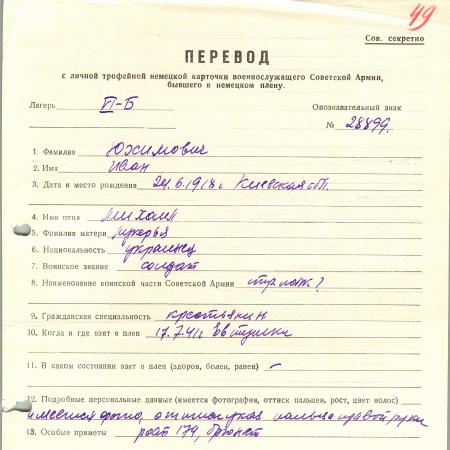 49
Сов. секретно
ПЕРЕВОД
с личной трофейной немецкой карточки военнослужащего Советской Армии,
бывшего в немецком плену.
Лагерь VI-Б Опознавательный знак
№ 28899.
1. Фамилия Юхимович
2. Имя Иван
3. Дата и место рождения 24.6.191 г. Киевская обл.
4. Имя отца Михаил
5. Фамилия матери
6. Национальность украинец
7. Воинское звание солдат
8. Наименование воинской части Советской Армии ?
9. Гражданская специальность крестьянин
10. Когда и где взят в плен 17.7.41г.
11. В каком состоянии взят в плен (здоров, болен, ранен) –
12. Подробные персональные данные (имеется фотография, оттиск пальцев, рост, цвет волос)
имеется фото, оттиск указ. пальца правой руки
13. Особые приметы рост 174, брюнет